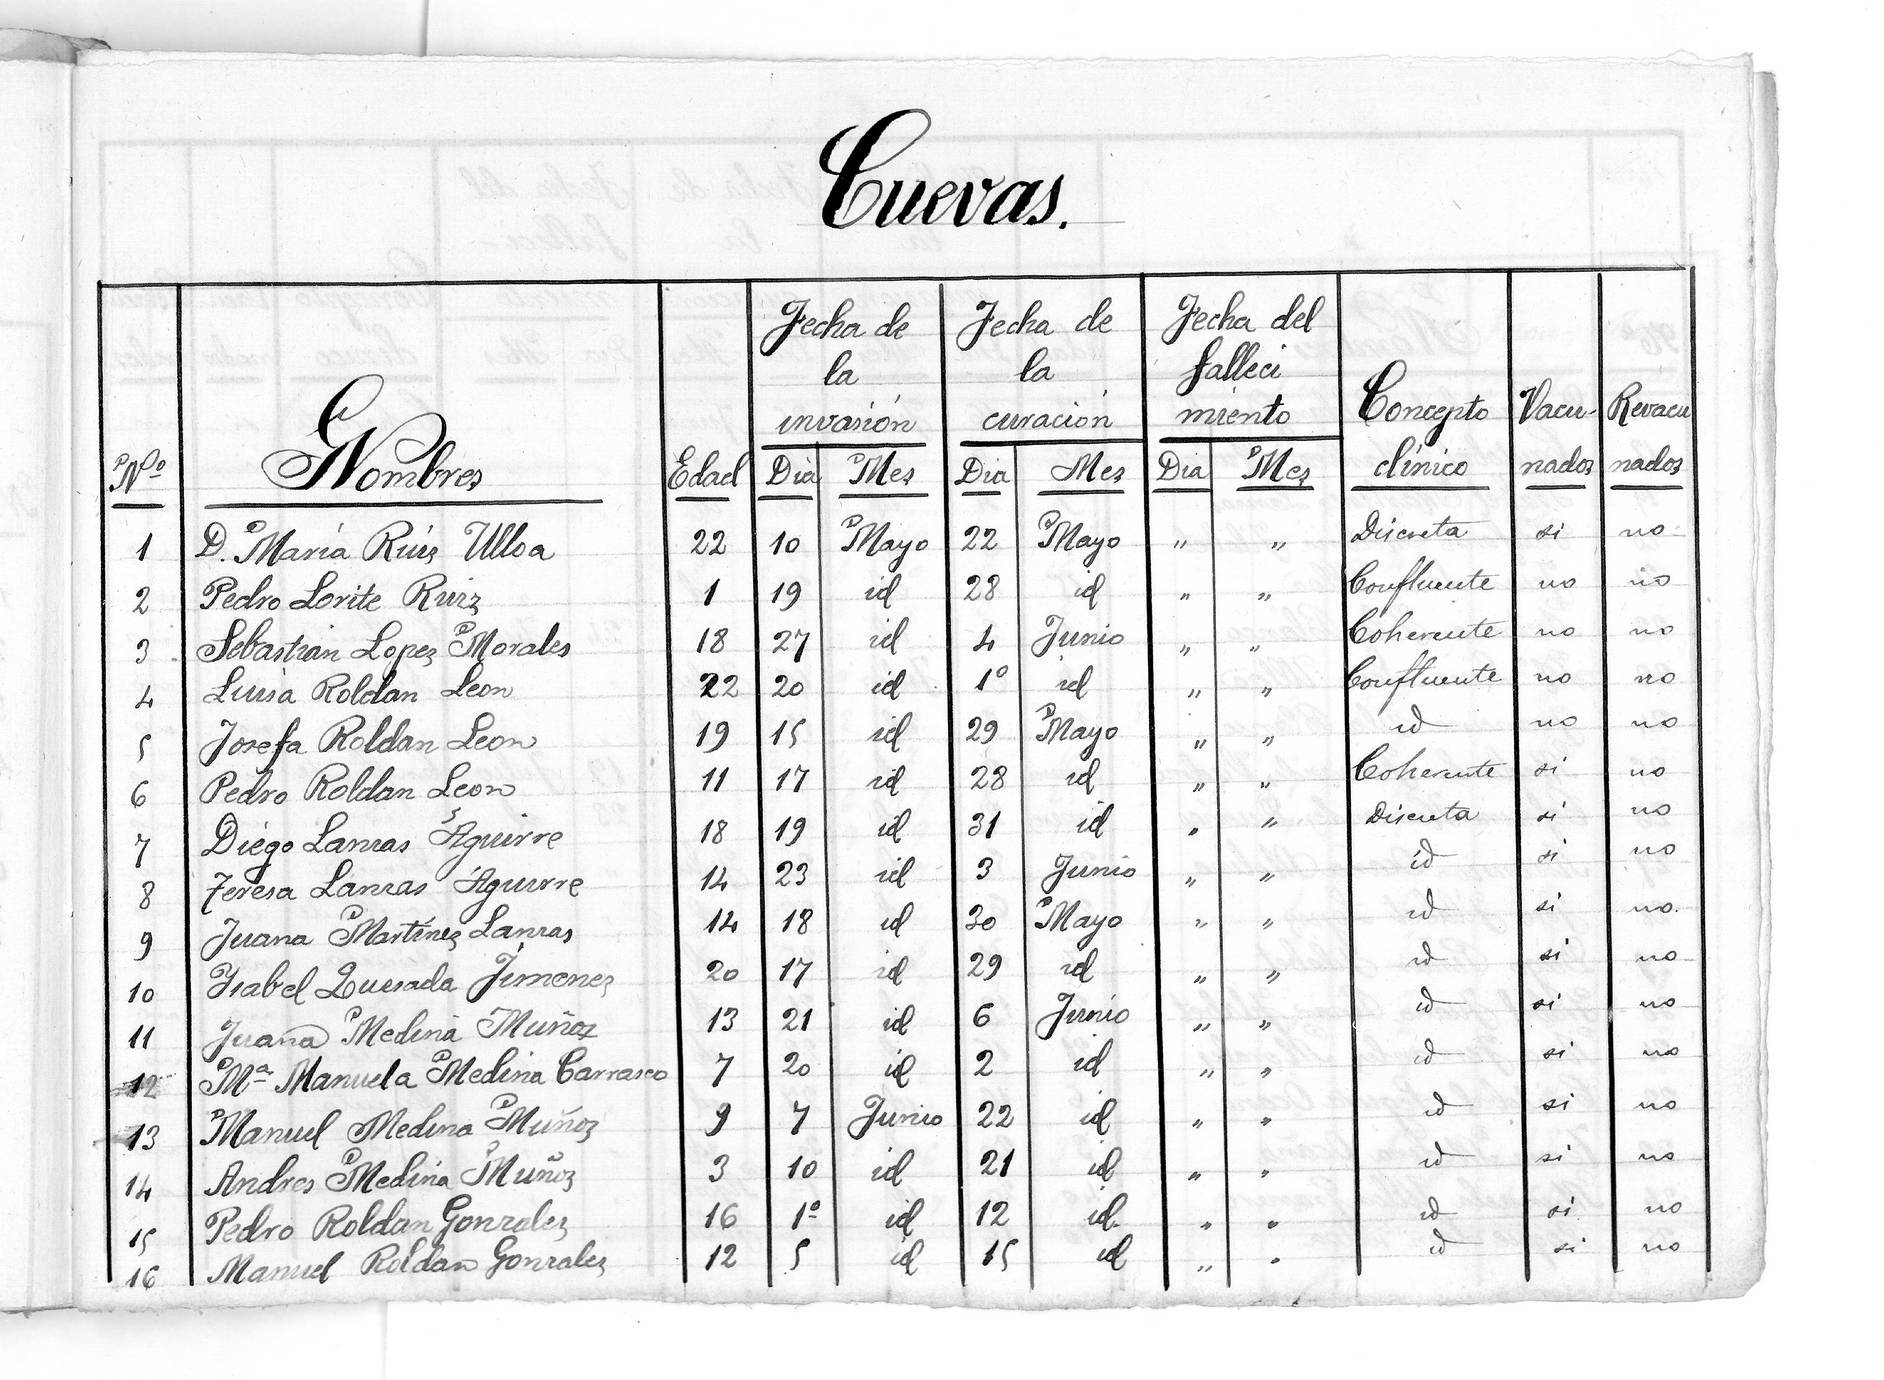 Cuevas.
Nº Nombres Edad Fecha de la invasión Fecha de la curación Fecha del falleci miento Concepto clínico Vacu- nados Revacu nados
Dia Mes Dia Mes Dia Mes
1 D. Maria Ruiz Ulloa 22 10 Mayo 22 Mayo " " Discreta si no
2 Pedro Lorite Ruiz 1 19 id 28 id " " Confluente no no
3 Sebastian Lopez Morales 18 27 id 4 Junio " " Coherente no no
4 Luisa Roldan Leon 22 20 id 1º id " " Confluente no no
5 Josefa Roldan Leon 19 15 id 29 Mayo " " id no no
6 Pedro Roldan Leon 11 17 id 28 id " " Coherente si no
7 Diego Lanzas Aguirre 18 19 id 31 id " " Discreta si no
8 Teresa Lanzas Aguirre 14 23 id 3 Junio " " id si no
9 Juana Martinez Lanzas 14 18 id 30 Mayo " " id si no.
10 Ysabel Quesada Jimenez 20 17 id 29 id " " id si no
11 Juana Medina Muñoz 13 21 id 6 Junio " " id si no
12 Mª Manuela Medina Carrasco 7 20 id 2 id " " id si no
13 Manuel Medina Muñoz 9 7 Junio 22 id " " id si no
14 Andres Medina Muñoz 3 10 id 21 id " " id si no
15 Pedro Roldan Gonzalez 16 1º id 12 id " " id si no
16 Manuel Roldan Gonzalez 12 5 id 15 id " " id si no